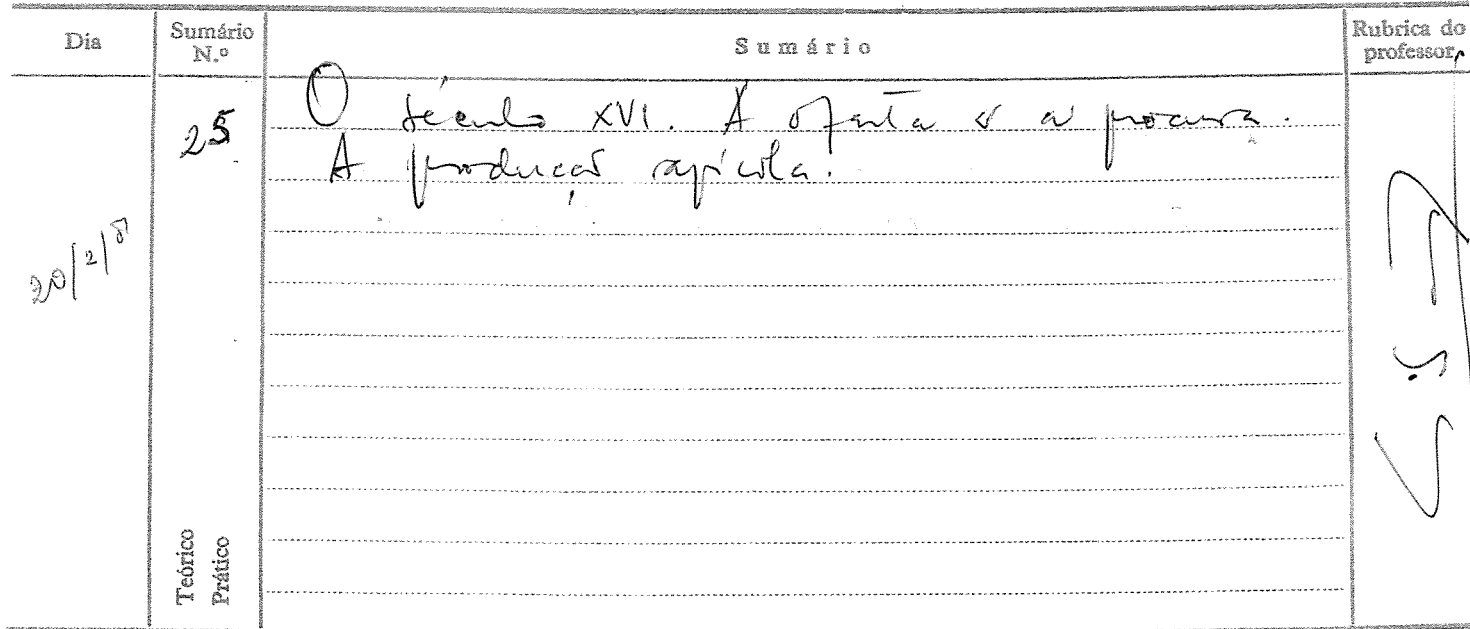 Dia
Sumário N.º
Sumário
Rubrica do professor
20/2/81
25
O século XVI. A oferta e a procura.
A produção agrícola.
Teórico
Prático